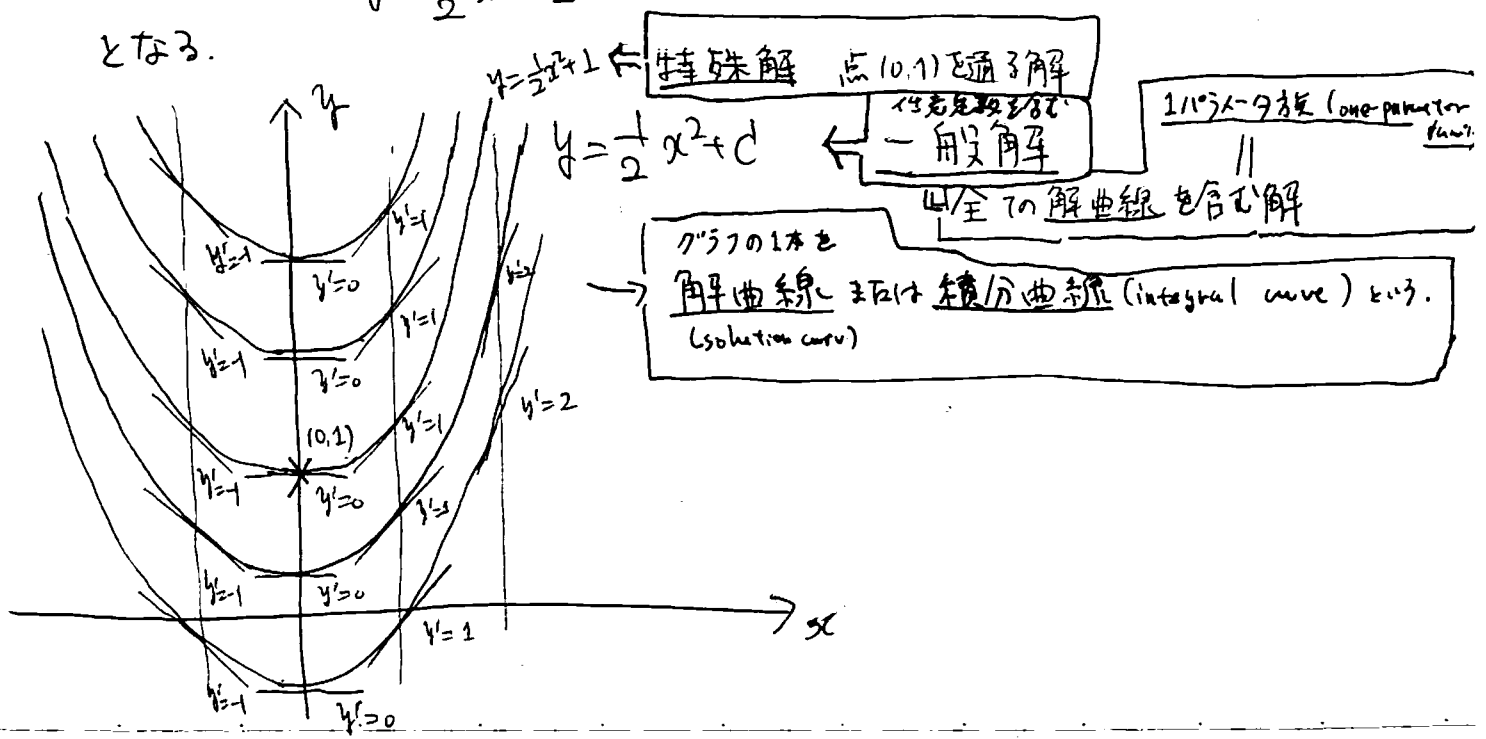 となる.
y=1/2x²+1 ⇐ 特殊解 点(0,1)を通る解
任意定数を含む
y = 1/2 x² + C ⇐ 一般解
1パラメータ族 (one parameter
||
全ての解曲線を含む解
グラフの1本を
→ 解曲線 または 積分曲線 (integral curve) という.
(solution curve)
y
y'=1
y'=-1
y'=0
y'=2
y'=1
y'=-1
y'=0
y'=2
(0,1)
y'=1
y'=-1
y'=0
y'=1
y'=-1
y'=0
x
y'=1
y'=-1
y'=0